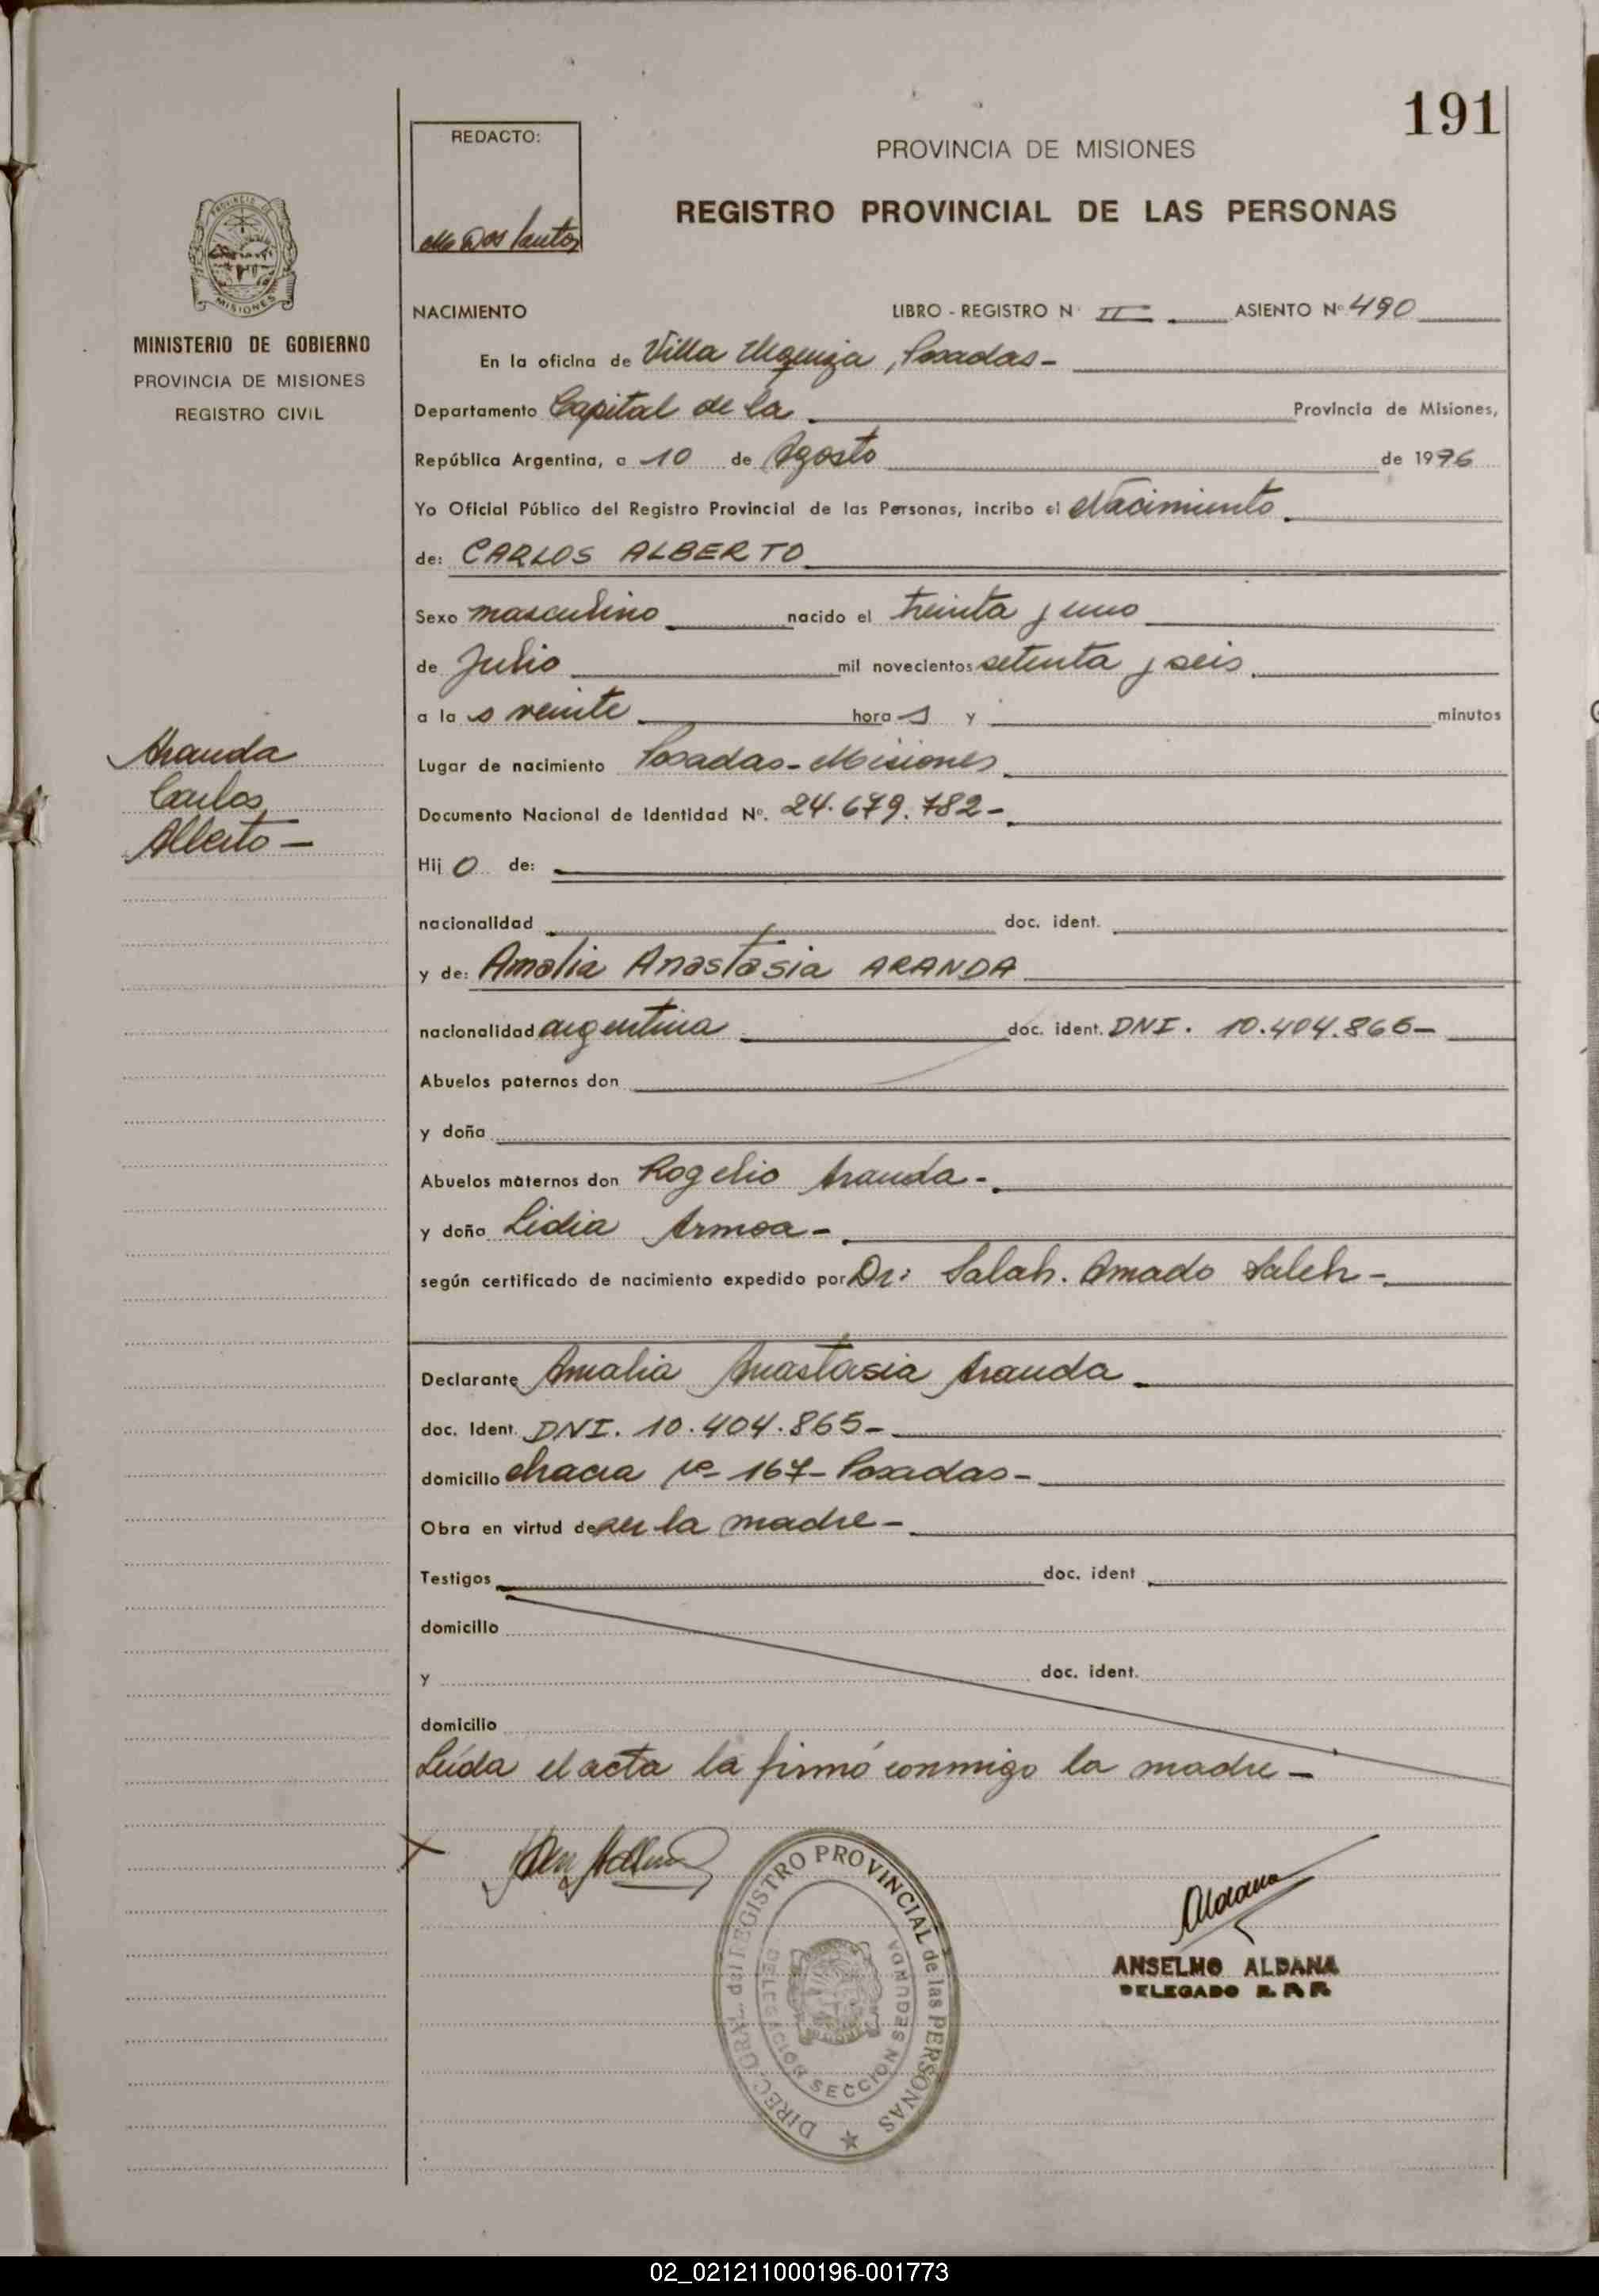 191
REDACTO:
Dos Santos
PROVINCIA DE MISIONES
REGISTRO PROVINCIAL DE LAS PERSONAS
PROVINCIA DE
MISIONES
MINISTERIO DE GOBIERNO
PROVINCIA DE MISIONES
REGISTRO CIVIL
NACIMIENTO LIBRO - REGISTRO N° II ASIENTO Nº 490
En la oficina de Villa Urquiza, Posadas-
Departamento Capital de la Provincia de Misiones,
República Argentina, a 10 de Agosto de 1976
Yo Oficial Público del Registro Provincial de las Personas, incribo el Nacimiento
de: CARLOS ALBERTO
Sexo masculino nacido el treinta y uno
de Julio mil novecientos setenta y seis
a las veinte horas y minutos
Aranda
Carlos
Alberto-
Lugar de nacimiento Posadas-Misiones
Documento Nacional de Identidad Nº. 24.679.782-
Hijo de:
nacionalidad doc. ident.
y de: Amalia Anastasia ARANDA
nacionalidad argentina doc. ident. DNI. 10.404.865-
Abuelos paternos don
y doña
Abuelos maternos don Rogelio Aranda-
y doña Lidia Armoa-
según certificado de nacimiento expedido por Dr: Salah. Amado Saleh-
Declarante Amalia Anastasia Aranda
doc. Ident. DNI. 10.404.865-
domicilio chacra nº 167- Posadas-
Obra en virtud de ser la madre-
Testigos doc. ident
domicilio
y doc. ident.
domicilio
Leída el acta la firmó conmigo la madre-
X
DIREC. GRAL. del REGISTRO PROVINCIAL de las PERSONAS
DELEGACION SECCION SEGUNDA
Aldana
ANSELMO ALDANA
DELEGADO R. P. P.
02_021211000196-001773